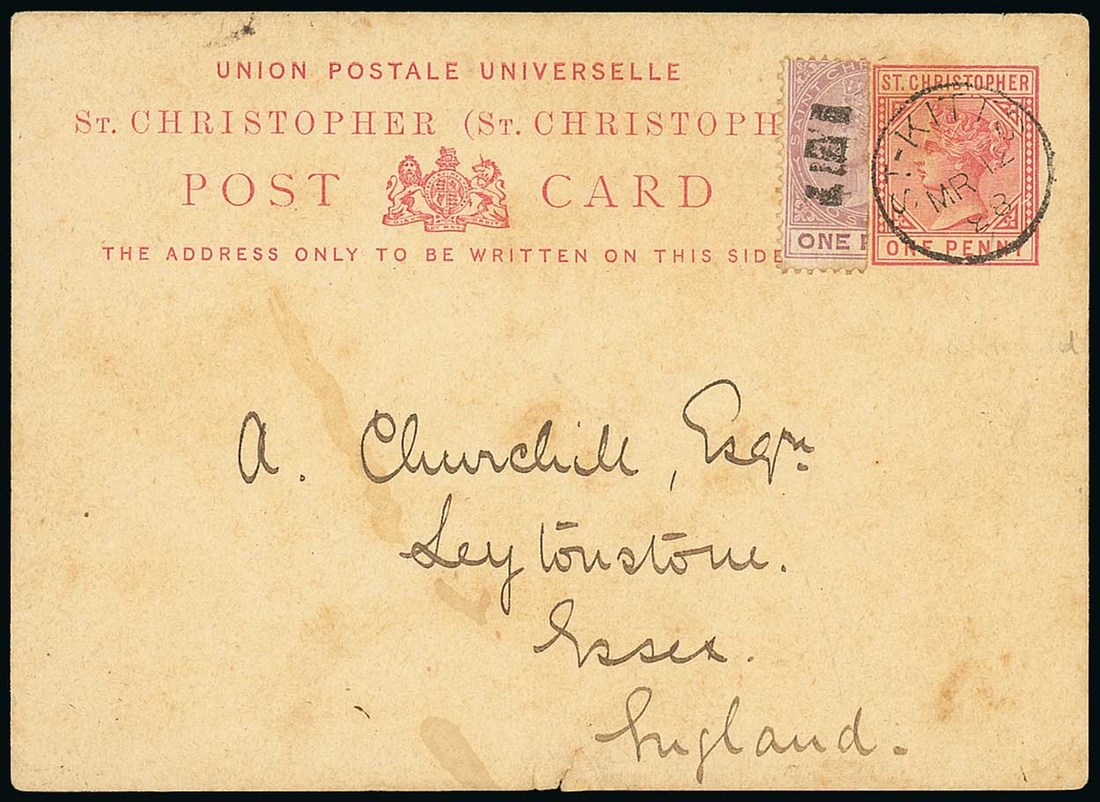 UNION POSTALE UNIVERSELLE
ST. CHRISTOPHER (ST. CHRISTOPH
POST CARD
THE ADDRESS ONLY TO BE WRITTEN ON THIS SIDE
SAINT CHR
ONE P
ST. CHRISTOPHER
ONE PENNY
ST. KITTS
MR 12
83
A. Churchill, Esqre
Leytonstone.
Essex.
England.